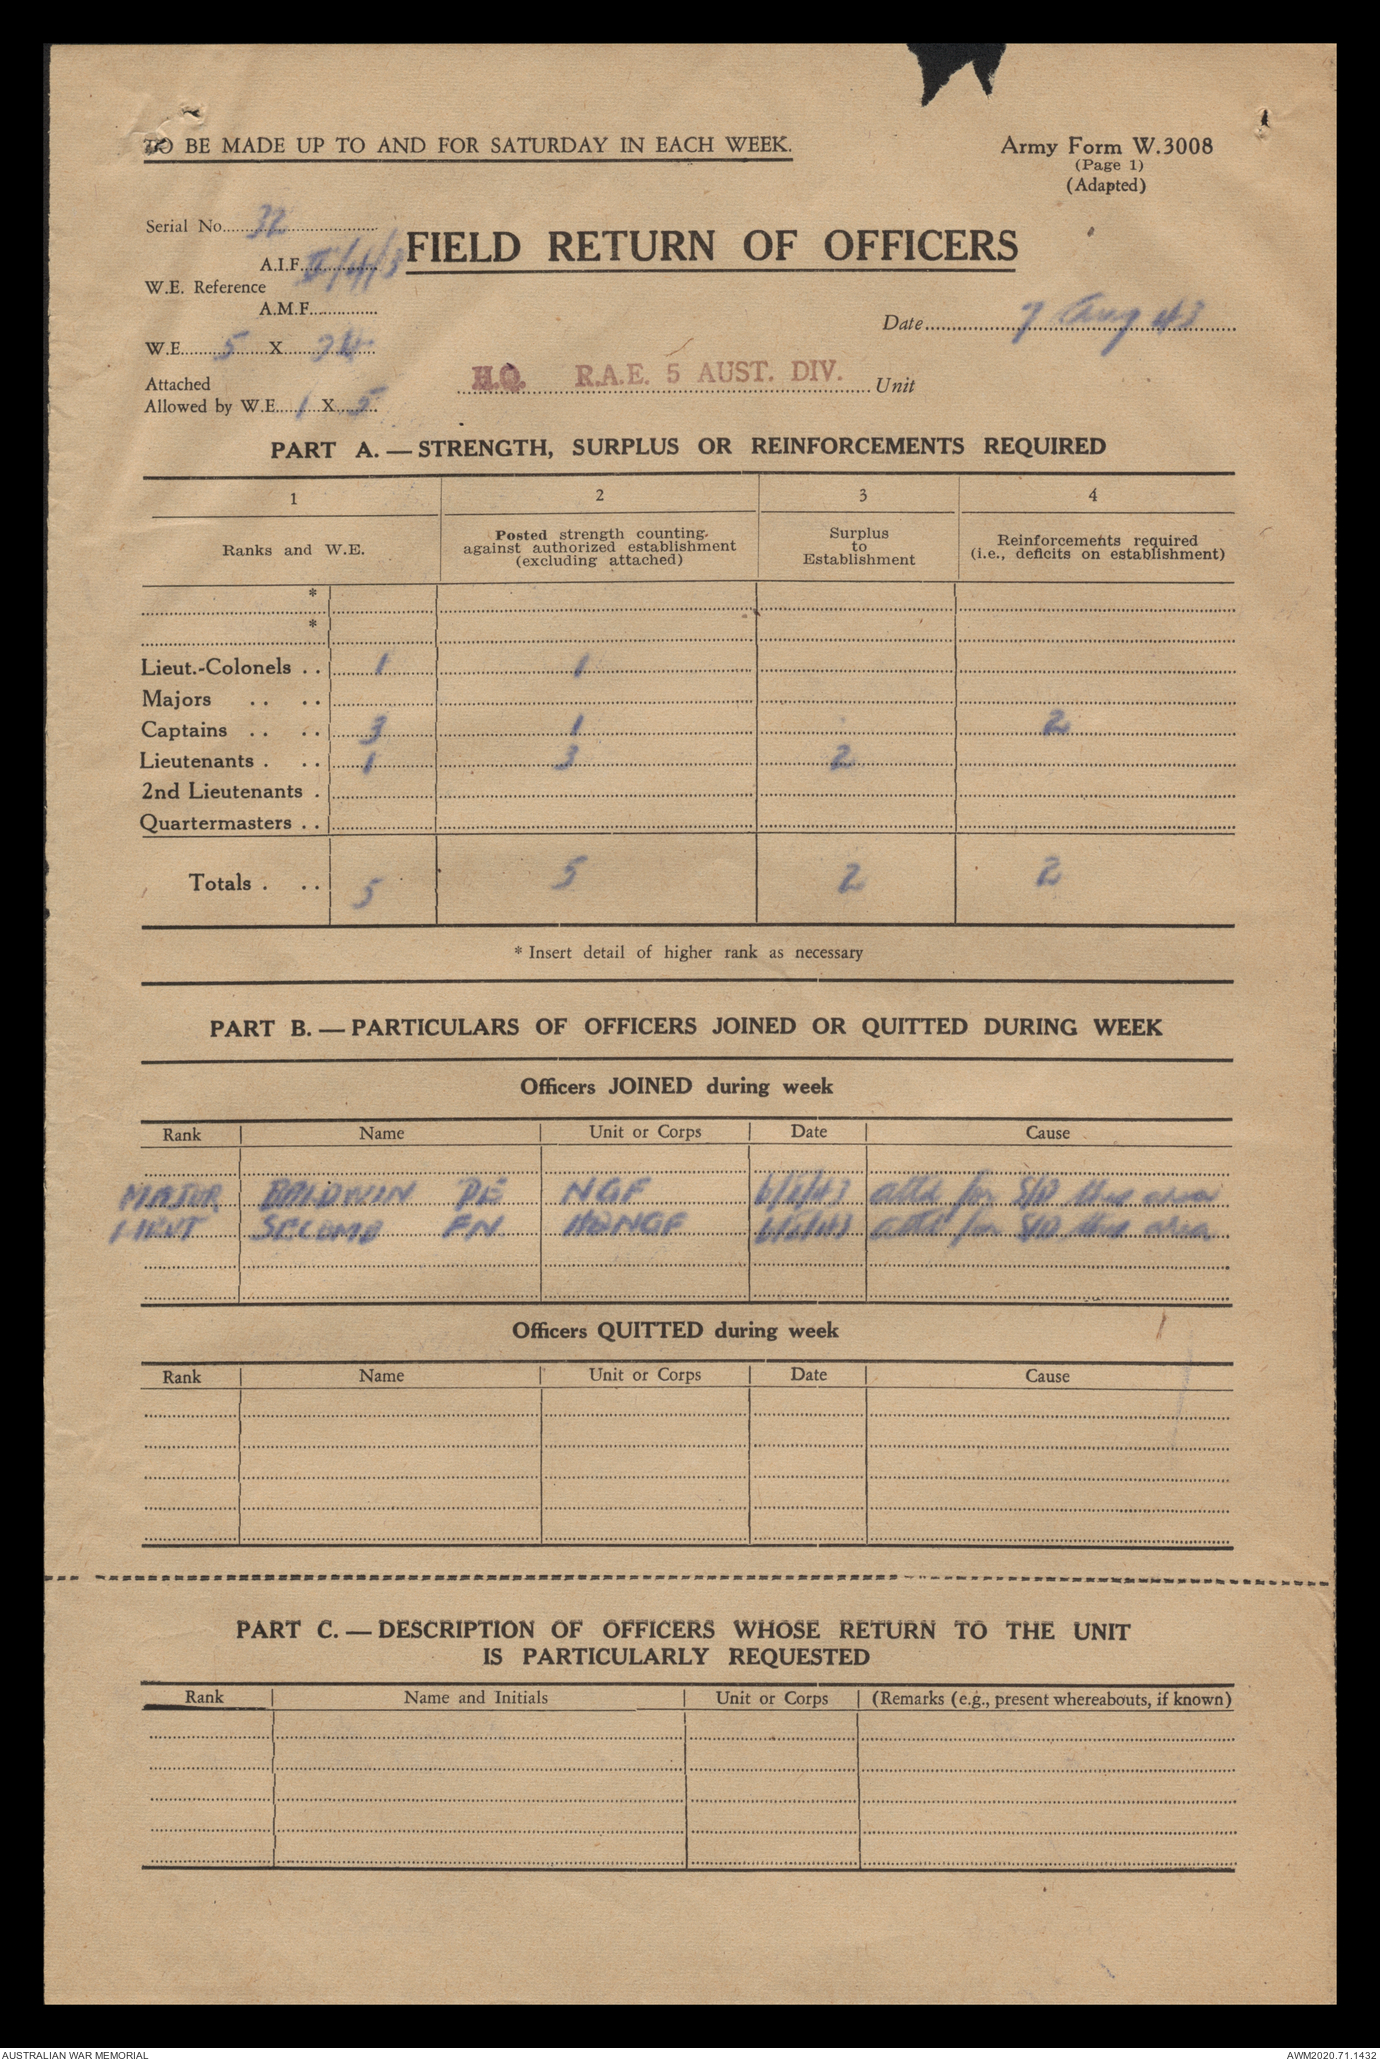 TO BE MADE UP TO AND FOR SATURDAY IN EACH WEEK.
Army Form W.3008
(Page 1)
(Adapted)
Serial No. 32
FIELD RETURN OF OFFICERS
A.I.F.
W.E. Reference
A.M.F.
Date 7 Aug 43
W.E. 5 X 24
H.Q. R.A.E. 5 AUST. DIV. Unit
Attached
Allowed by W.E. 1 X 5
PART A. — STRENGTH, SURPLUS OR REINFORCEMENTS REQUIRED
1 2 3 4
Ranks and W.E. Posted strength counting against authorized establishment (excluding attached) Surplus to Establishment Reinforcements required (i.e., deficits on establishment)
*
*
Lieut.-Colonels . . 1 1
Majors . . . .
Captains . . . . 3 1 2
Lieutenants . . . 1 3 2
2nd Lieutenants .
Quartermasters . .
Totals . . . 5 5 2 2
* Insert detail of higher rank as necessary
PART B. — PARTICULARS OF OFFICERS JOINED OR QUITTED DURING WEEK
Officers JOINED during week
Rank Name Unit or Corps Date Cause
MAJOR BALDWIN DE NGF attd for this area
LIEUT FN HQ NGF attd for this area
Officers QUITTED during week
Rank Name Unit or Corps Date Cause
PART C. — DESCRIPTION OF OFFICERS WHOSE RETURN TO THE UNIT
IS PARTICULARLY REQUESTED
Rank Name and Initials Unit or Corps (Remarks (e.g., present whereabouts, if known)
AUSTRALIAN WAR MEMORIAL AWM2020.71.1432